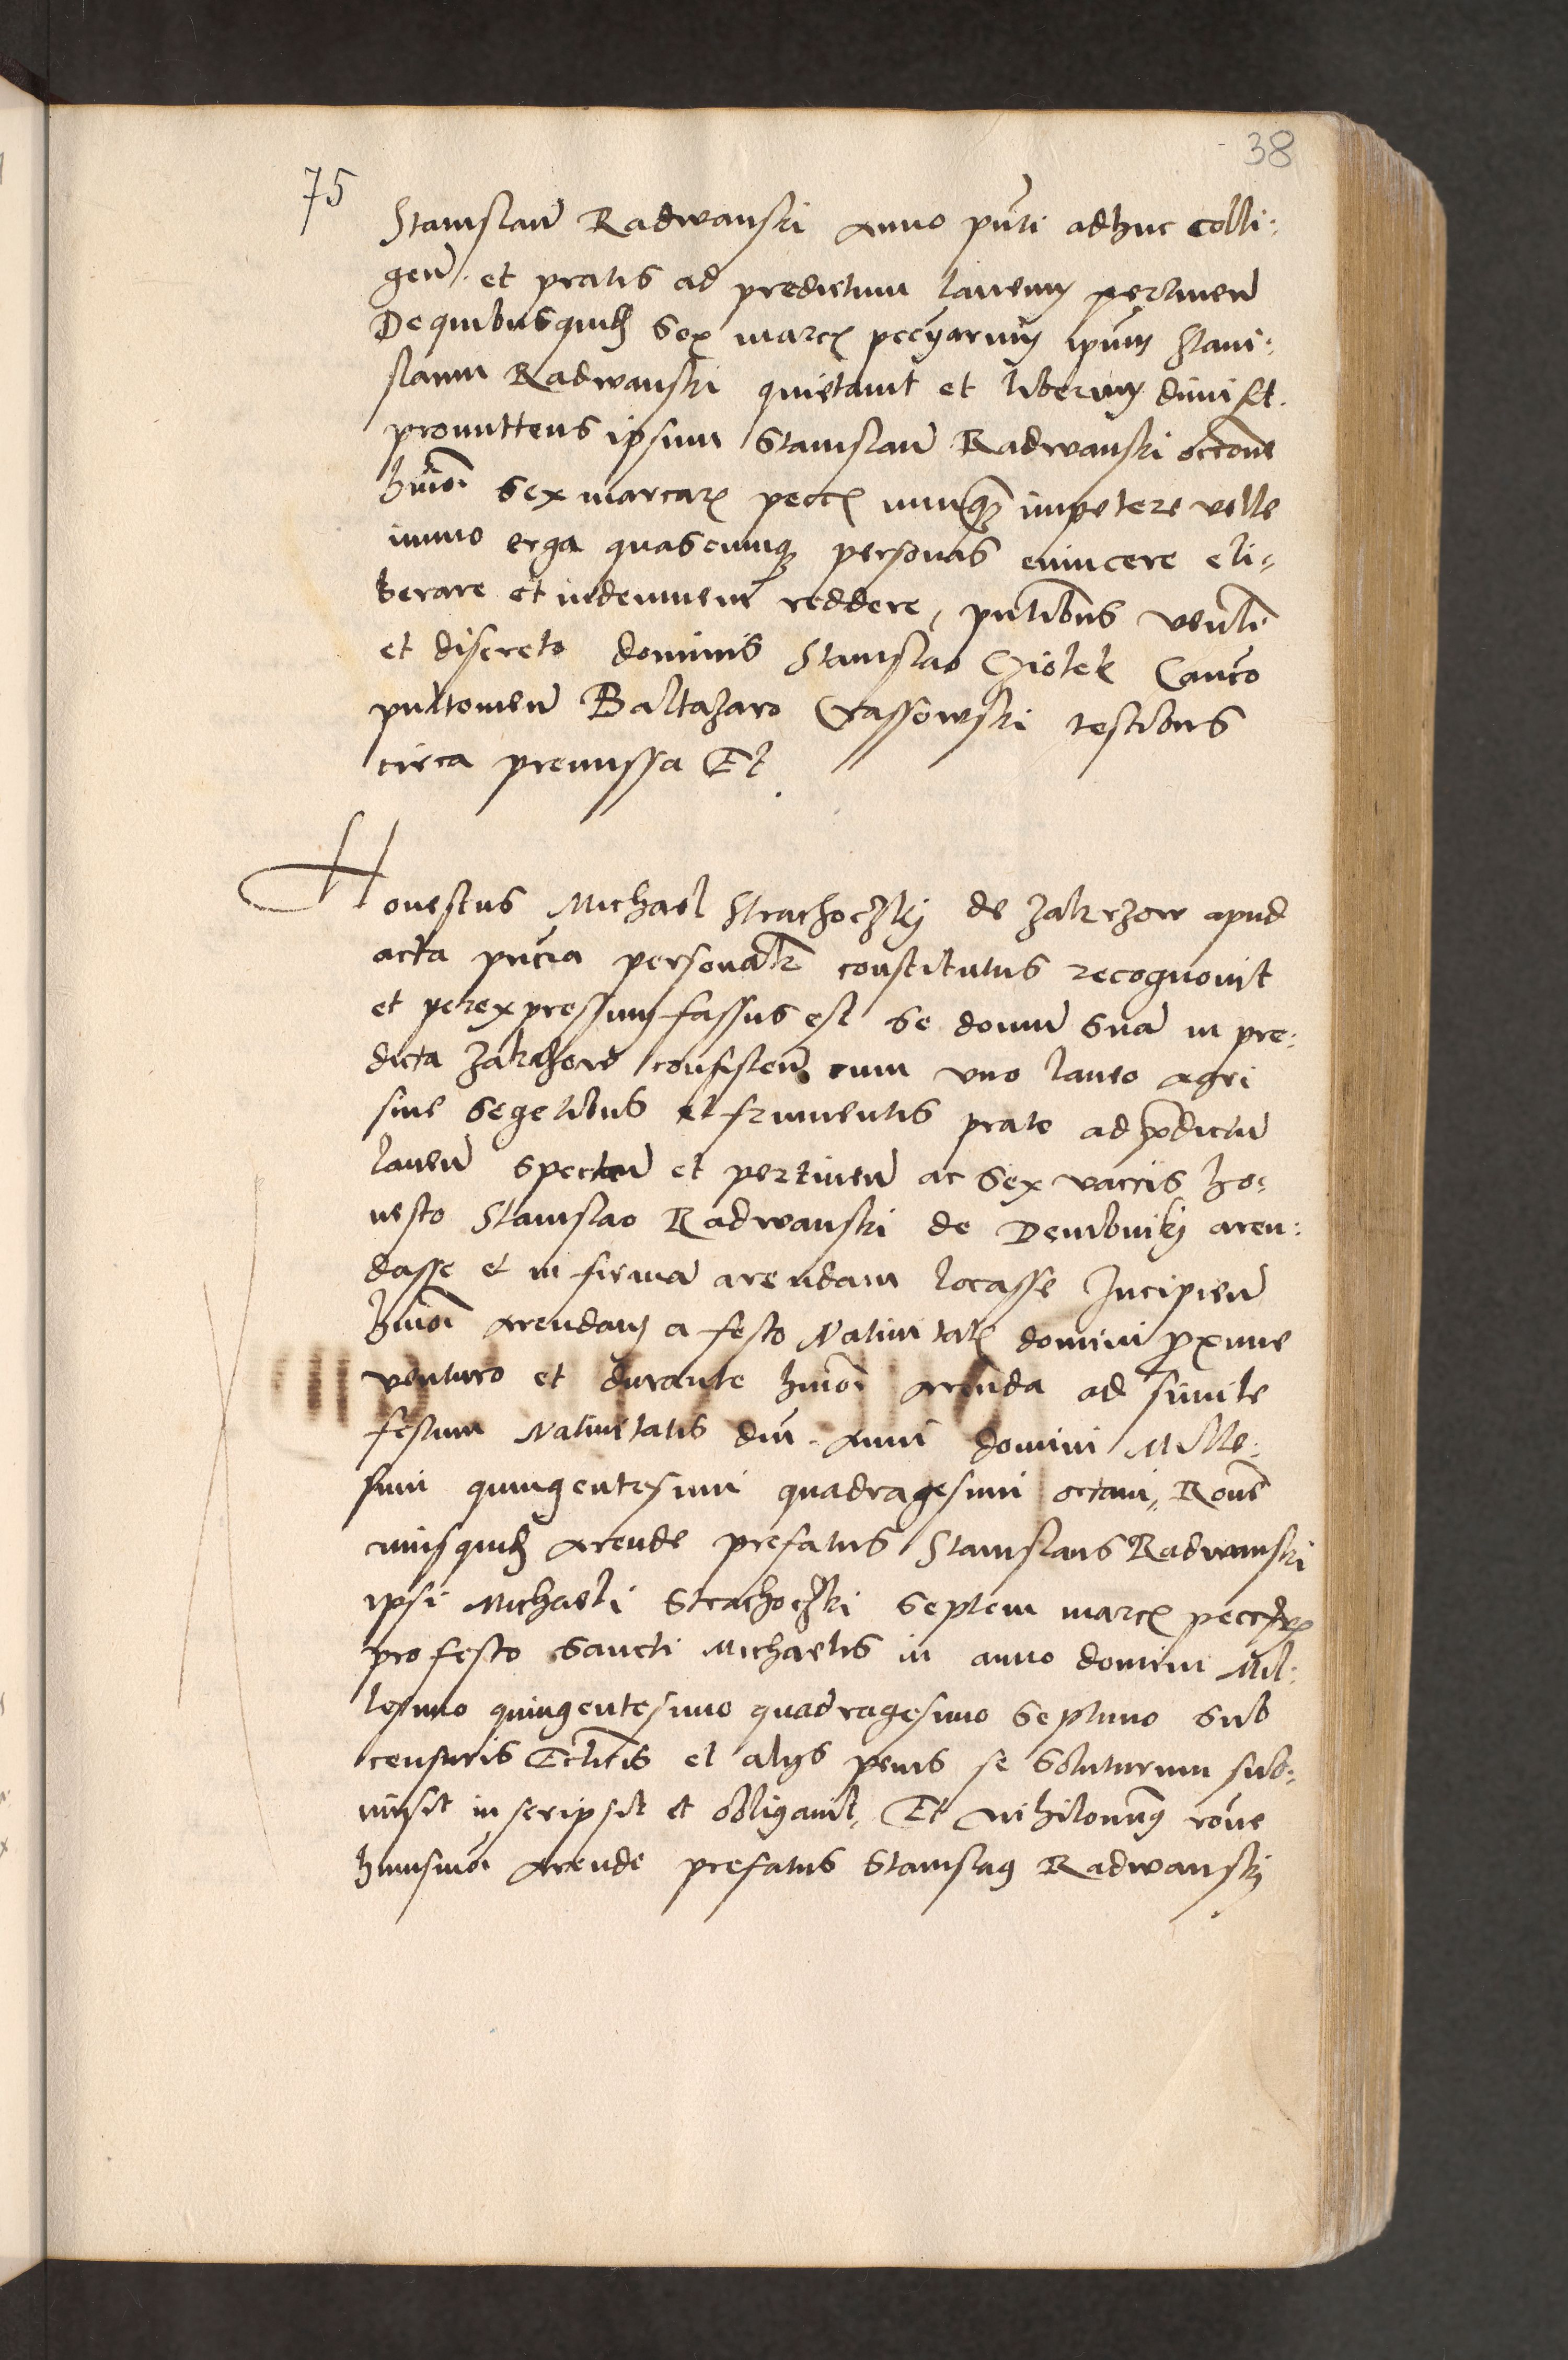 38
75
Stanislaū Radwanski Anno pn̄ti adhuc colli:
gen̄. et pratis ad predictum laneum pertinen̄
De quibusquid̨ Sex marc̨ peccūarum ip̄um Stani:
slaum Radwanski quietavit et liberum dimisit.
promittens ipsum Stanislaū Radwanski occ̄one
hmōi Sex marcar̨ pecc̨ nunq̄ impetere velle
immo erga quascumq̨ personas evincere eli:
berare et indemnem reddere, pn̄tibus ven̄li
et discreto dominis Stanislao Cziolek Can̄co
pultouien̄ Baltazaro Grassowski testibus
circa premissa Et
Honestus Michael Strachoczky de Zakrzow apud
acta pn̄cia personal̄r constitutus recognovit
et per expressum fassus est Se domū suā in pre:
dicta Zakrzow consisten̄ cum uno laneo agri
sine Segetibus et frumentis prato ad p̄dictū
laneū spectan̄ et pertinen̄ ac Sex vaccis ho:
nesto Stanislao Radwanski de Dembniky aren:
dasse et in firmā arendam locasse Incipien̄
hmōi Arendam a festo Nativitat̨ domini proxime
venturo et durante hmōi Arenda ad simile
festum Nativitatis dn̄i Anni domini Mille:
simi quingentesimi quadragesimi octavi, Rōne
cuiusquid̨ Arende prefatus Stanislaus Radwanski
ipsi Michaeli Strachoczki Septem marc̨
pro festo Sancti Michaelis in anno domini Mil:
lesimo quingentesimo quadragesimo Septimo sub
censuris Ecl̄icis et alijs penis se soluturum sub:
misit inscripsit et obligavit, Et nihilominus rōne
huiusmōi Arende prefatus Stanislaus Radwansky